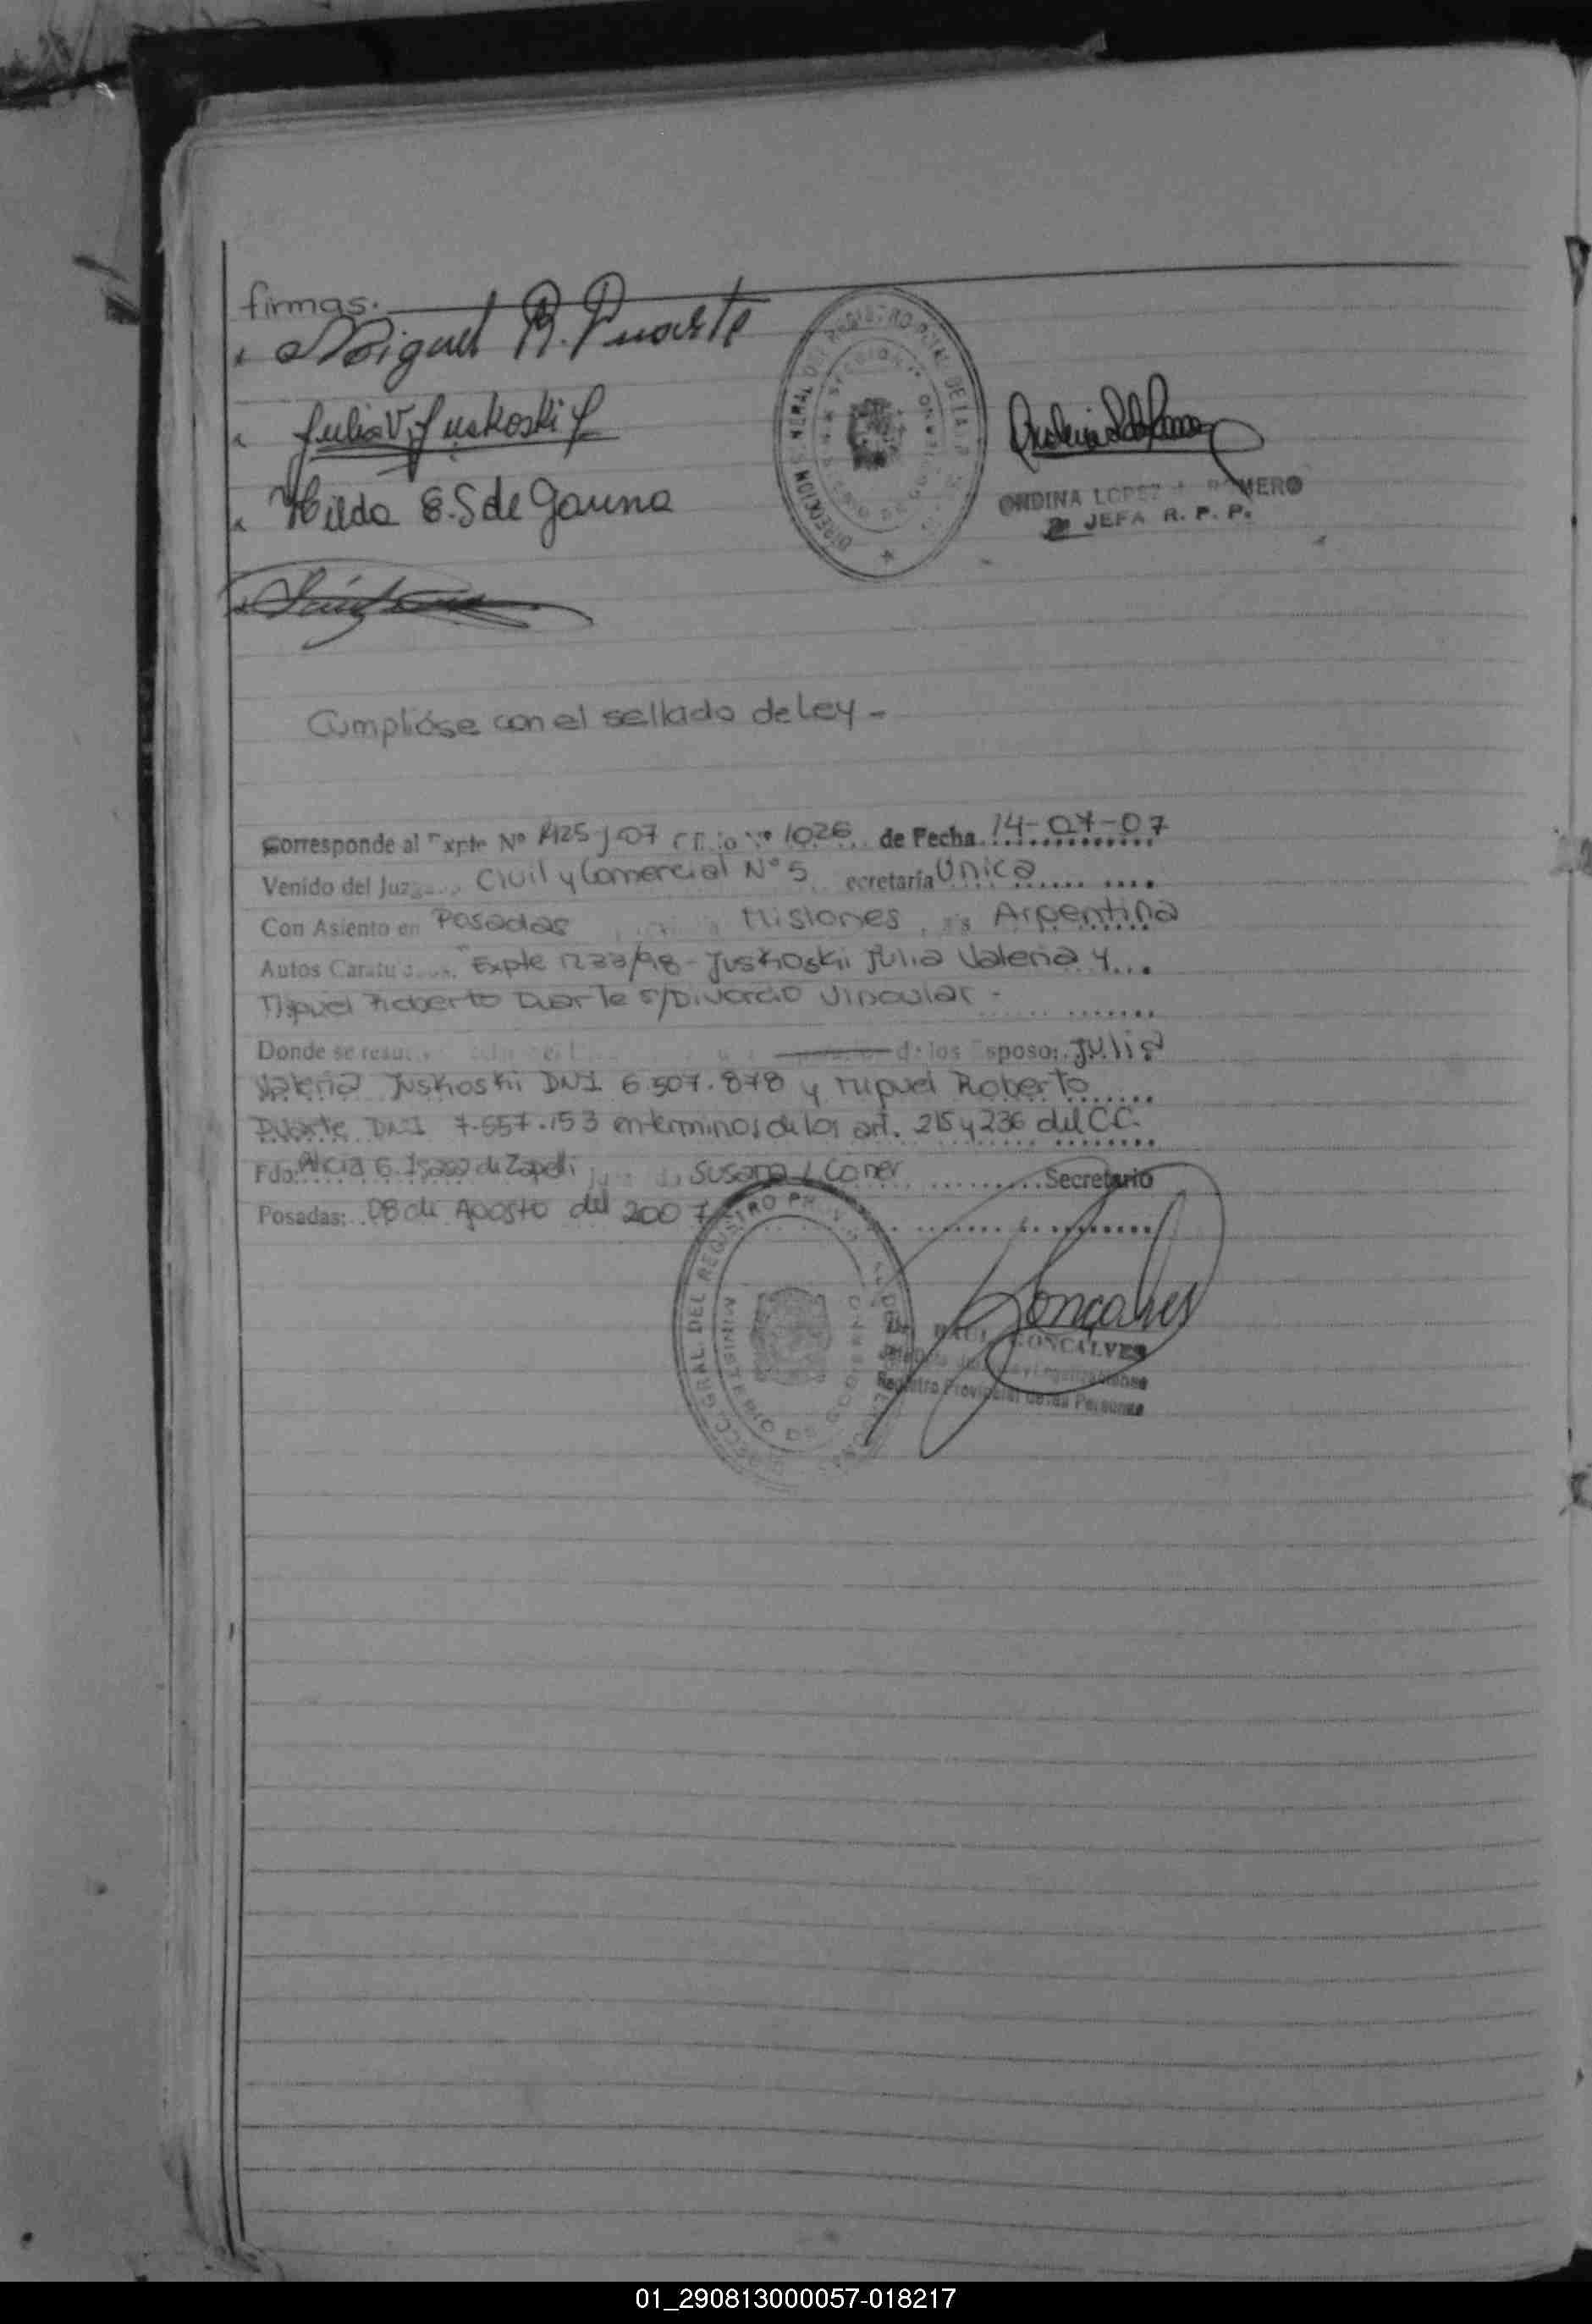 firmas.
Miguel R. Duarte
Julia V. Juskoski
Hilda E. S de Gauna
ONDINA LOPEZ ROMERO
JEFA R. P. P.
Cumplióse con el sellado de Ley -
Corresponde al Expte Nº 4125 J-07 Oficio Nº 1026 de Fecha 14-07-07
Venido del Juzgado Civil y Comercial Nº 5 Secretaría Unica
Con Asiento en Posadas Misiones Argentina
Autos Caratulados Expte 1233/98 - Juskoski Julia Valeria y
Miguel Roberto Duarte s/Divorcio Vincular -
Donde se de los Esposos: Julia
Valeria Juskoski DNI 6.507.878 y Miguel Roberto
Duarte DNI 7.557.153 en terminos de los art. 215 y 236 del C.C.
Fdo: Alicia G. de Zapelli Susana Secretario
Posadas: 08 de Agosto del 2007
Goncalves
RAUL GONCALVES
Registro Provincial de las Personas
01_290813000057-018217